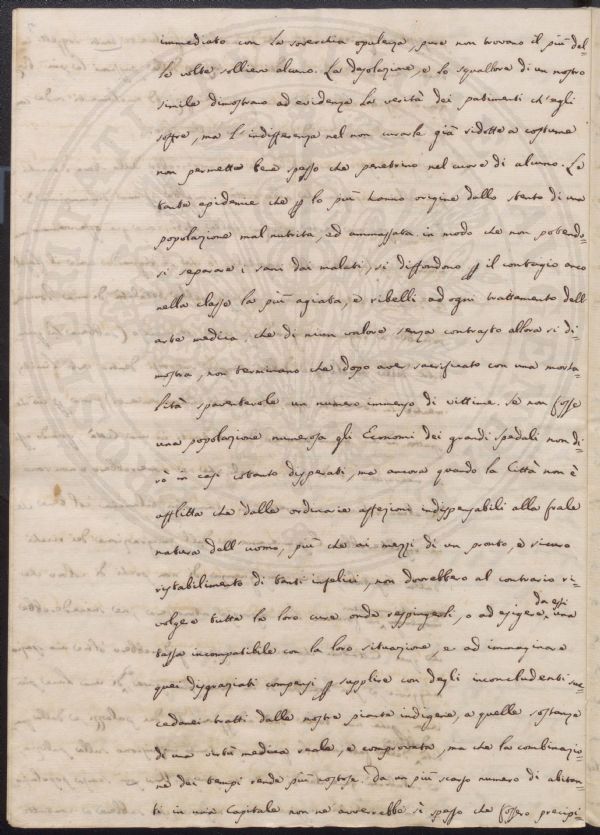 immediato con la soverchia opulenza, pure non trovano il più del-
le volte sollievo alcuno. La desolazione, e lo squallore di un nostro
simile dimostrano ad evidenza la verità dei patimenti ch'egli
soffre, ma l'indifferenza nel non curarle già ridotta a costume
non permette bene spesso che penetrino nel cuore di alcuno. Le
tante epidemie che p lo più hanno origine dallo stento di una
popolazione mal nutrita, ed ammassata in modo che non potendo-
si separare i sani dai malati, si diffondono p il contagio anco
nella classe la più agiata, e ribelli ad ogni trattamento dell'
arte medica, che di niun valore senza contrasto allora si di-
mostra, non terminano che dopo aver sacrificato con una morta-
lità spaventevole un numero immenso di vittime. Se non fosse
una popolazione numerosa gli Economi dei grandi spedali non di-
rò in casi cotanto disperati, ma ancora quando la Città non è
afflitta che dalle ordinarie affezioni indispensabili alla frale
natura dell'uomo, più che ai mezzi di un pronto, e sicuro
ristabilimento di tanti infelici, non dovrebbero al contrario ri-
volgere tutte le loro cure onde respingerli, o ad esigere da essi una
tassa incompatibile con la loro situazione, e ad immaginare
quei disgraziati compensi p supplire con degli inconcludenti suc-
cedanei tratti dalle nostre piante indigene, a quelle sostanze
di una virtù medica reale, e comprovata, ma che la combinazio-
ne dei tempi rende più costose. Da un più scarso numero di abitan-
ti in una Capitale non ne avverrebbe sì spesso che fossero precipi-